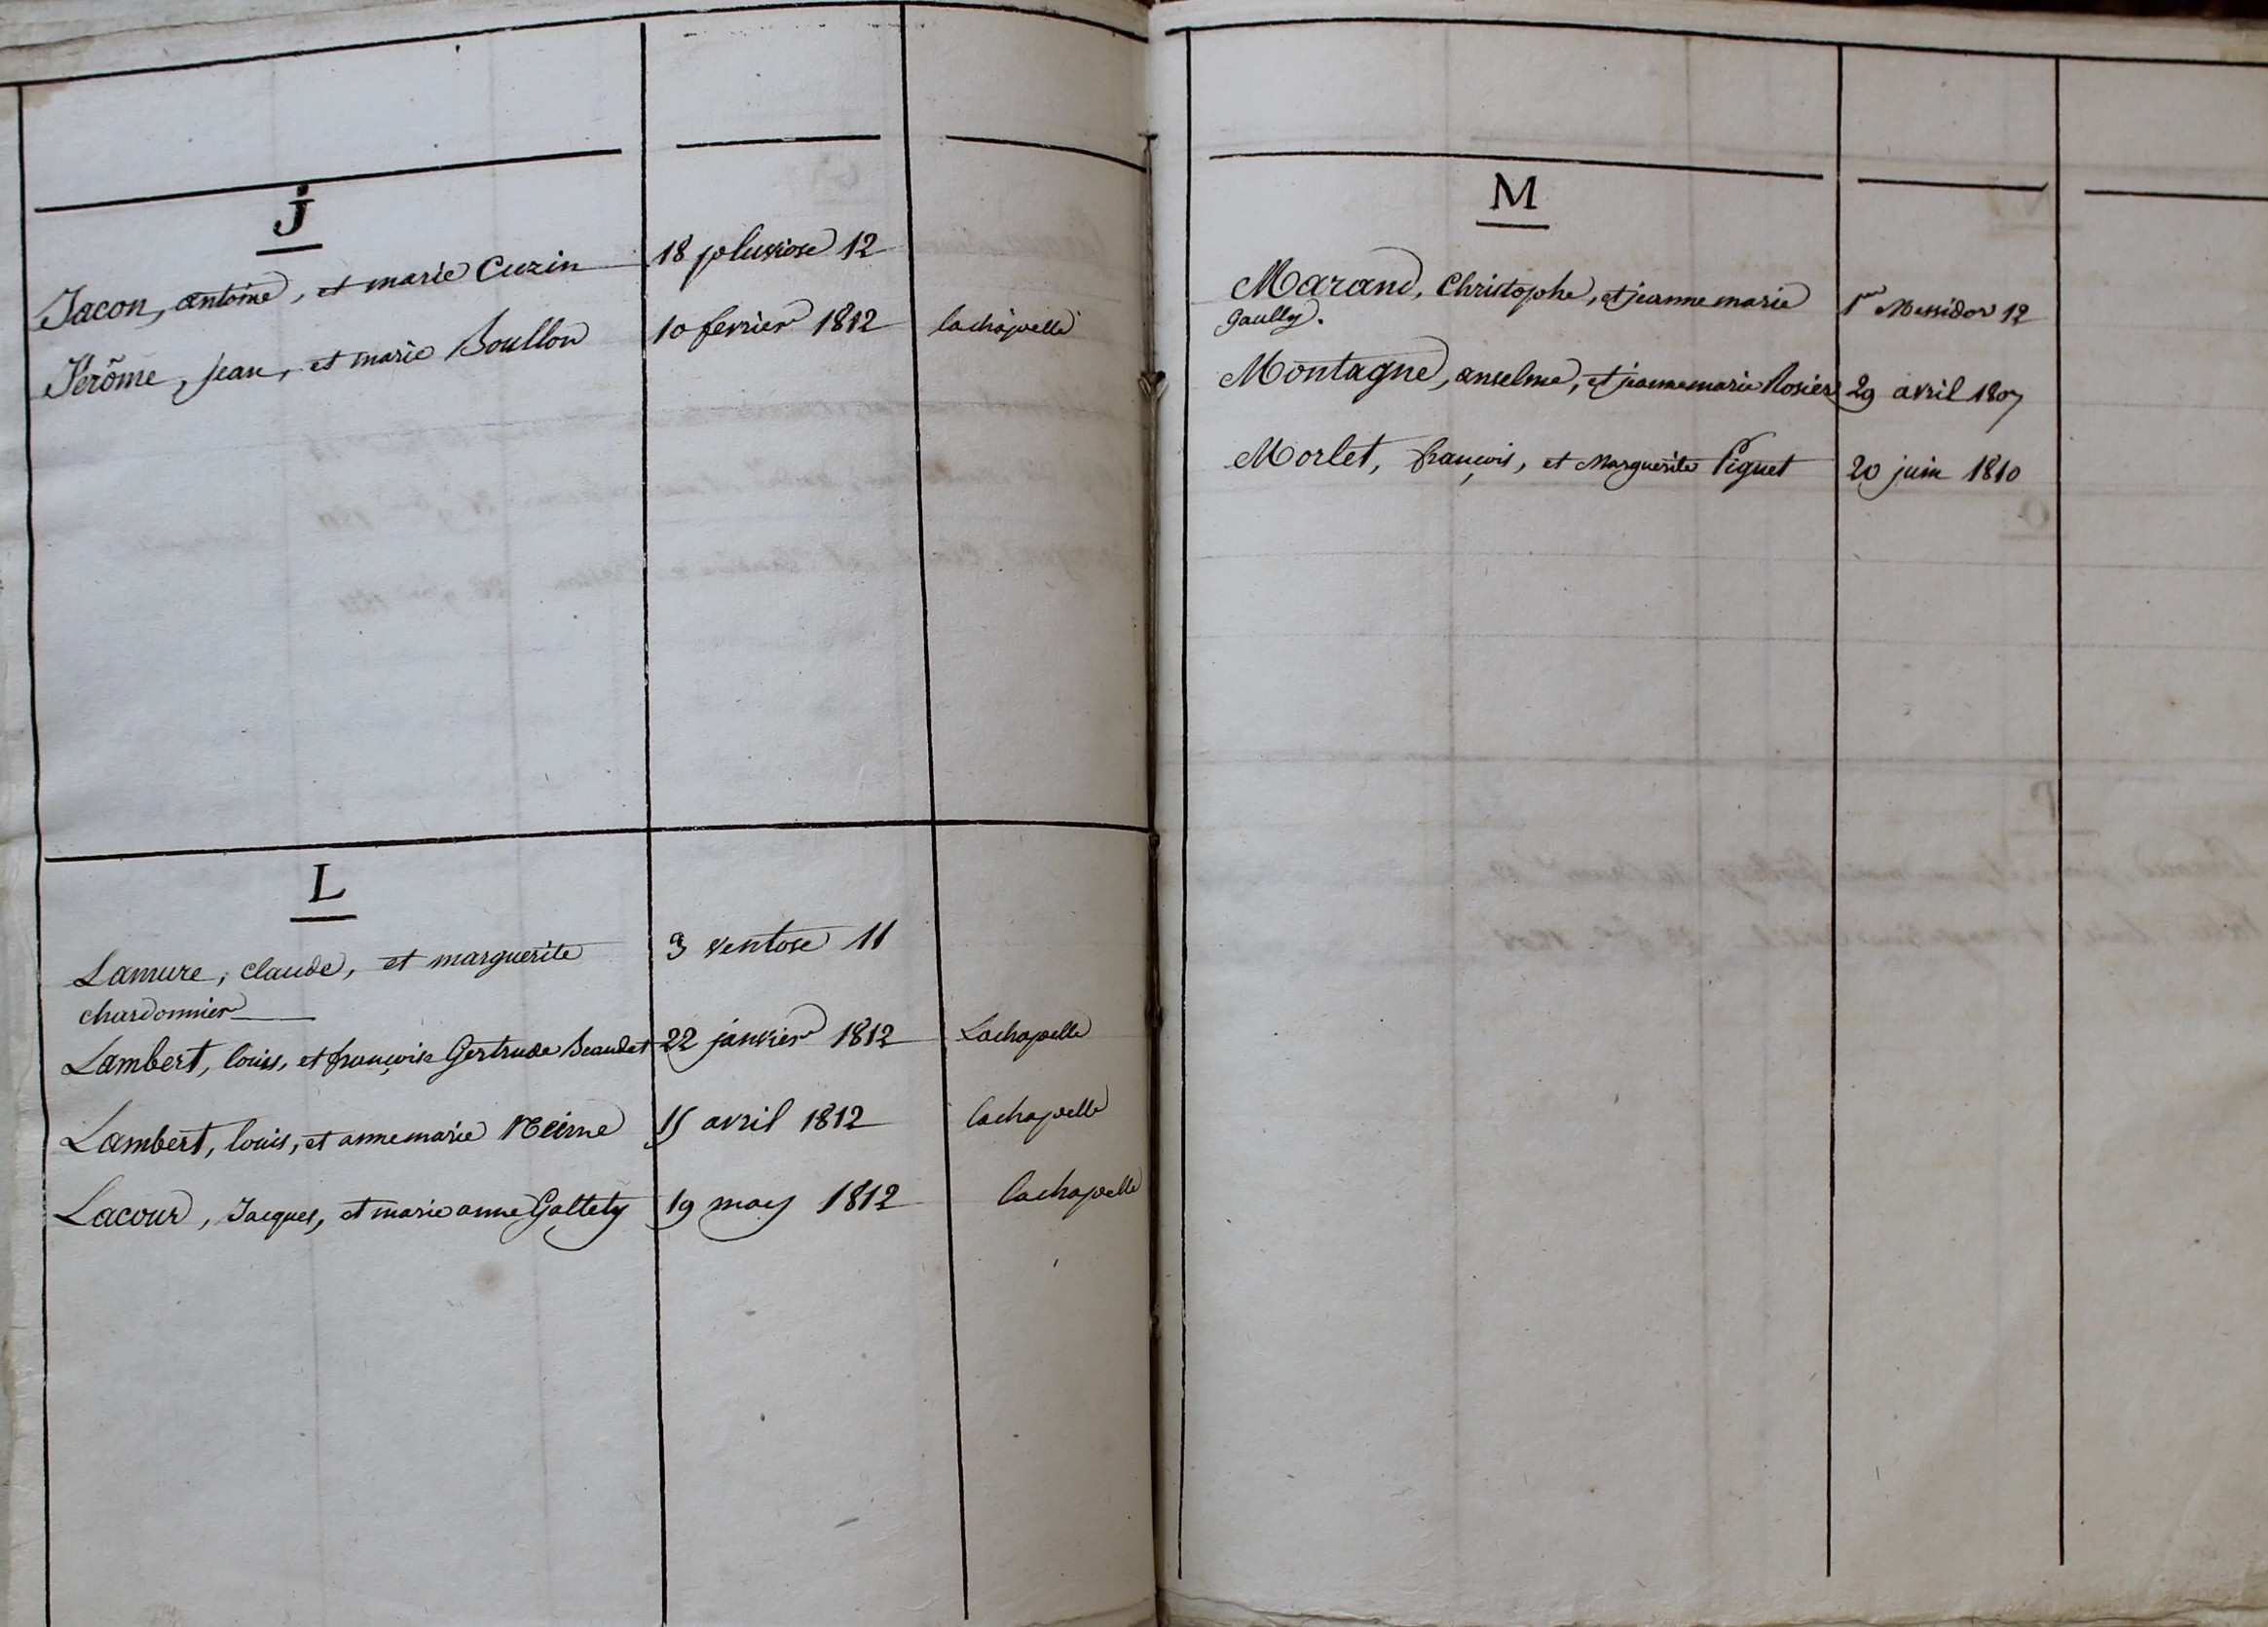 J
Jacon, antoine, et marie Cuzin 18 pluviose 12
Jerôme, jean, et marie Boullon 10 fevrier 1812 lachapelle
L
Lamure, claude, et marguerite 3 ventose 11
chardonnier
Lambert, louis, et françoise Gertrude Beaudet 22 janvier 1812 Lachapelle
Lambert, louis, et anne marie 15 avril 1812 lachapelle
Lacour, Jacques, et marie anne Galtety 19 may 1812 lachapelle
M
Marand, Christophe, et jeanne marie 1er Messidor 12
Gaully.
Montagne, anselme, et jeanne marie Rosier 29 avril 1807
Morlet, françois, et Marguerite Piquet 20 juin 1810